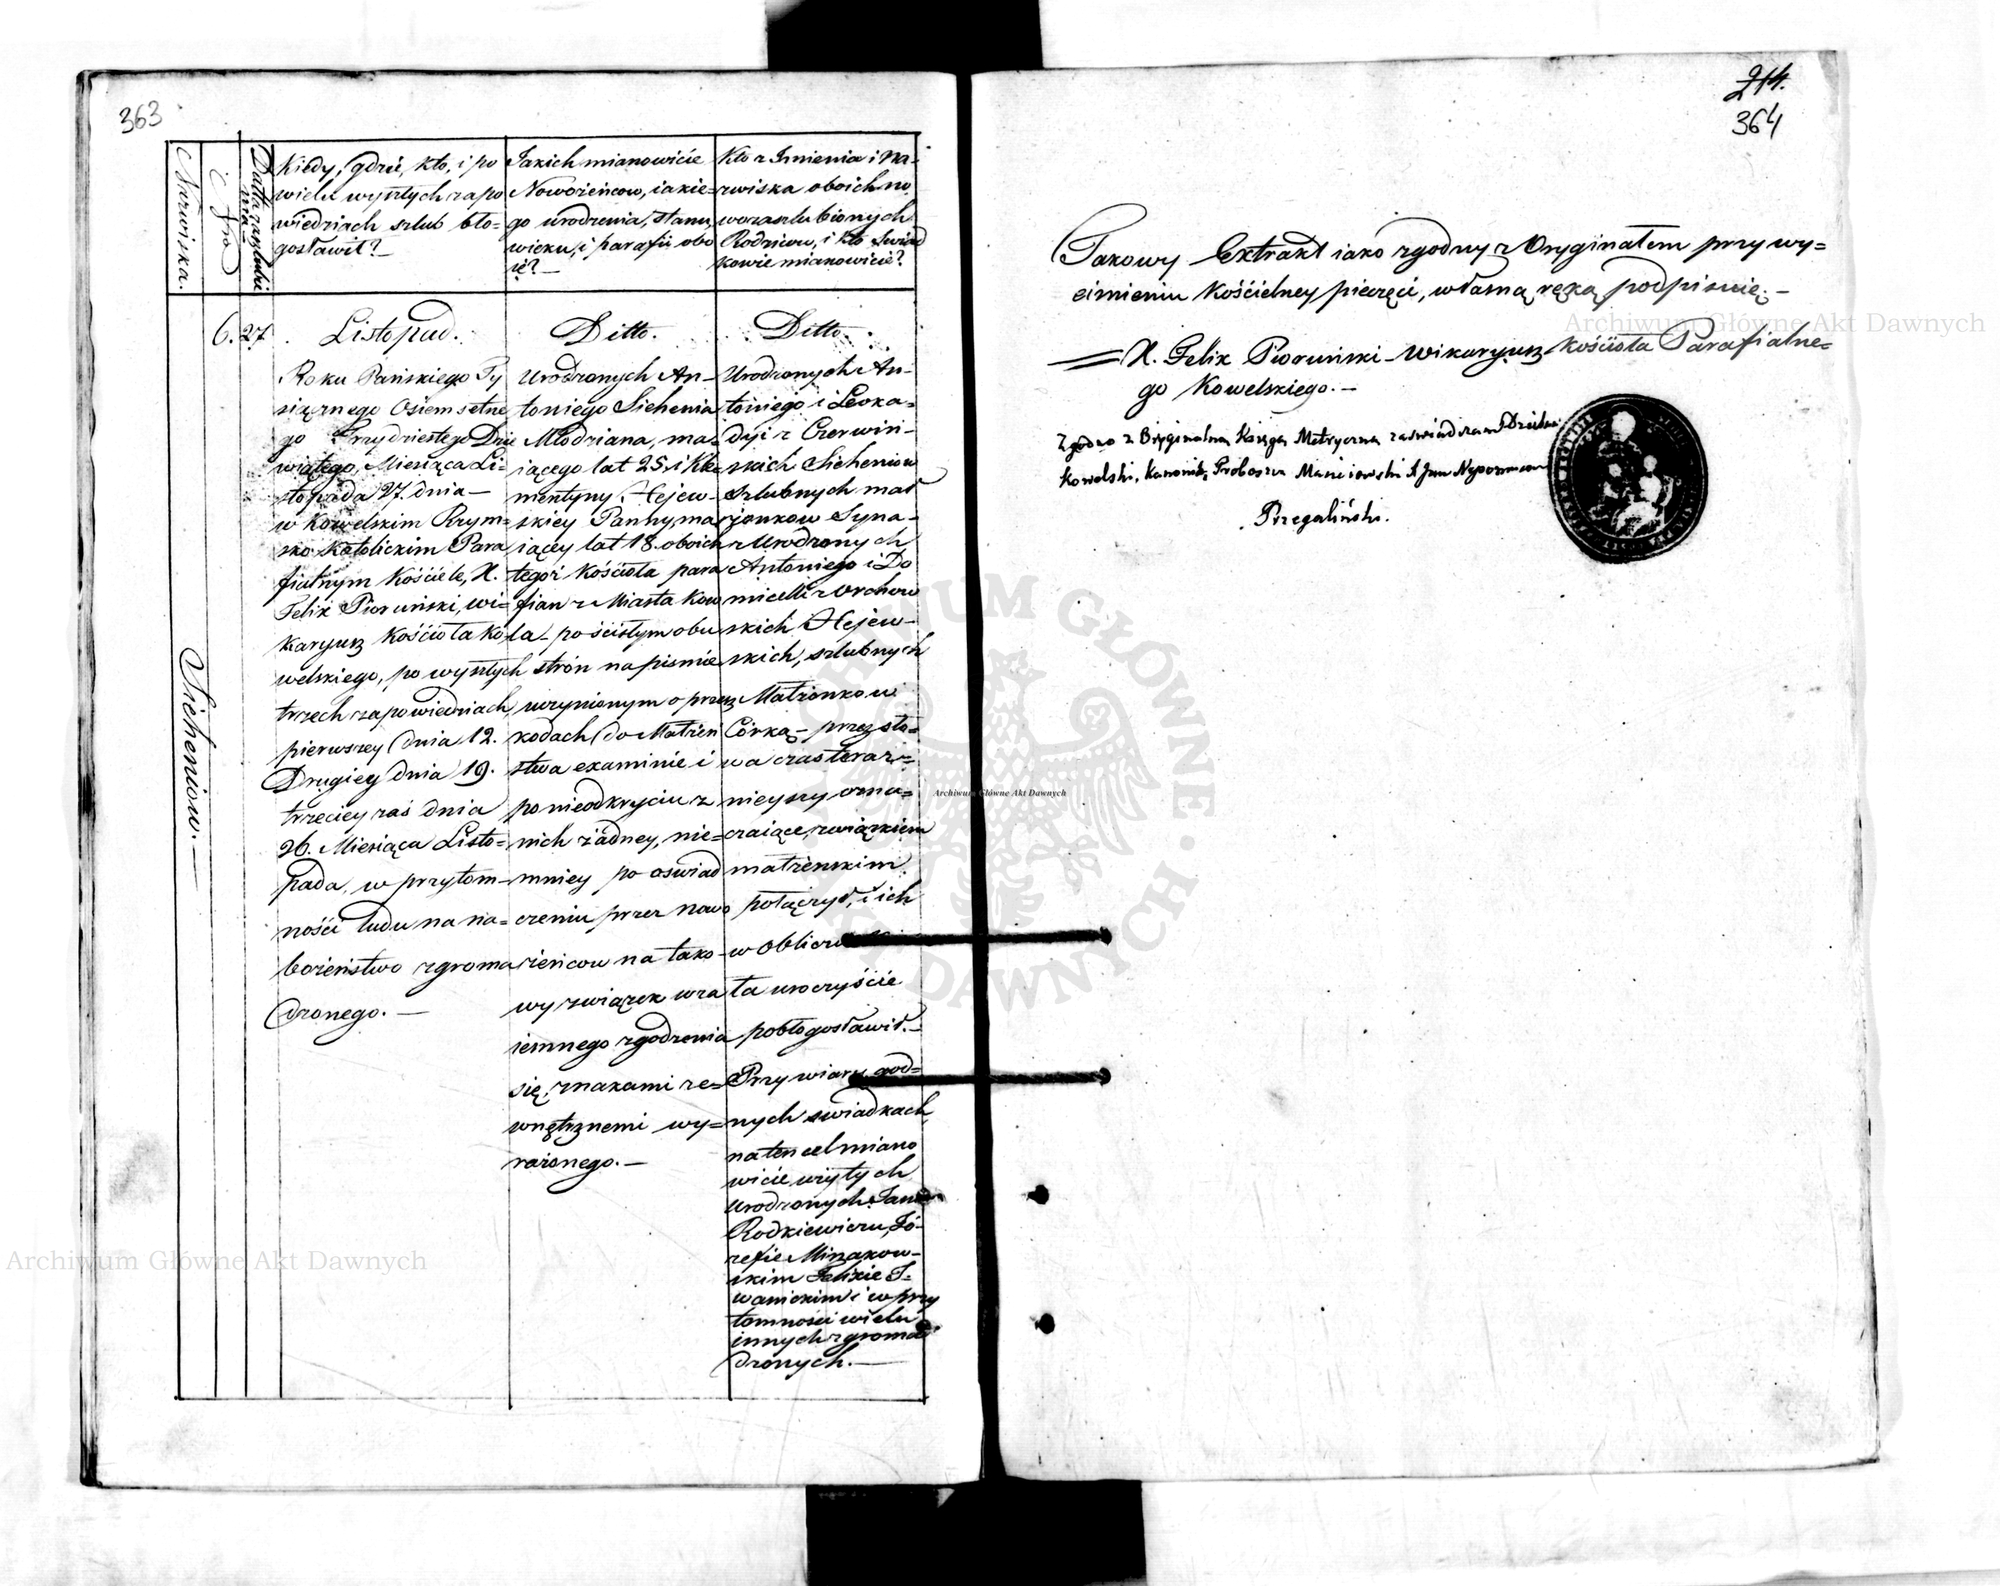 363
Nazwiska.
i Nro
Datta zaszłubie
nia
Kiedy, gdzie, kto, i po
wielu wyszłych zapo
wiedziach szlub bło=
gosławił?—
Jakich mianowicie
Nowożeńcow, iakie=
go urodzenia, stanu,
wieku, i parafii obo
ie?—
Kto z Imienia i Na=
zwiska oboich no
wozaszlubionych
Rodzicow, i kto Swiad
kowie mianowicie?
Sicheniow.—
6. 27
Listopad.
Roku Pańskiego Ty
siącznego Osiemsetne
go Trzydziestego Dzie
wiątego, Miesiąca Li=
stopada 27. dnia—
w Kowelskim Rzym=
sko Katolickim Para
fialnym Kościele, X.
Felix Piorunski, wi=
karyusz Kościoła Ko
welskiego, po wyszłych
trzech zapowiedziach,
pierwszey dnia 12.
Drugiey dnia 19.
trzeciey zaś dnia
26. Miesiąca Listo=
pada, w przytom=
ności ludu na na=
bożeństwo zgroma
dzonego.—
Ditto.
Urodzonych An=
toniego Sichenia
Młodziana, ma=
iącego lat 25. i Kle=
mentyny Hejew=
skiey Panny ma
iącey lat 18. oboich
tegoż Kościoła para
fian z Miasta Kow
la— po ścisłym obu
stron na pismie
uczynionym o przesz
kodach do Małżeń
stwa examinie i
po nieodkryciu z
nich żadney, nie=
mniey po oswiad
czeniu przez nowo
żeńcow na tako=
wy związek wza
iemnego zgodzenia
się, znakami ze=
wnętrznemi wy=
rażonego.—
Ditto.
Urodzonych An=
toniego i Leoka=
dyi z Czerwin=
skich Sicheniow
szlubnych mał
żonkow Syna=
z Urodzonych
Antoniego i Do
micelli z Orchow
skich Hejew=
skich, szlubnych
Małżonkow
Córką— przez sło=
wa czas teraz=
nieyszy ozna=
czaiące, związkiem
małżenskim
połączył, i ich
w obliczu
ta uroczyście
pobłogosławił.—
Przy wiary god=
nych swiadkach
na ten cel miano
wicie użytych
Urodzonych Janie
Rodkiewiczu, Jó=
zefie Minakow=
skim Felixie I=
wanickim i w przy
tomności wielu
innych zgroma
dzonych.—
214.
364
Takowy Extrakt iako zgodny z Oryginałem przy wy=
cisnieniu Kościelney pieczęci, własną ręką podpisuię.—
X. Felix Piorunski— Wikaryusz Kościoła Parafialne=
go Kowelskiego.—
Zgodno z Oryginalną Księgą Metryczną zaświadczam Dziekan
Kowelski, Kanonik, Proboszcz Maciejowski X Jan Nepomucen
Przegaliński.
Archiwum Główne Akt Dawnych
Archiwum Główne Akt Dawnych
Archiwum Główne Akt Dawnych
ARCHIWUM GŁÓWNE AKT DAWNYCH